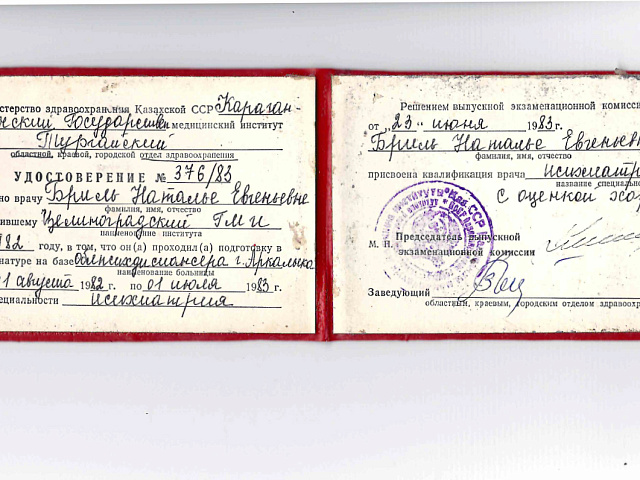 стерство здравоохранения Казахской ССР Караган-
нский Государствен. медицинский институт
Тургайский
областной, краевой, городской отдел здравоохранения
УДОСТОВЕРЕНИЕ № 376/83
но врачу Бриль Наталье Евгеньевне
фамилия, имя, отчество
ившему Целиноградский ГМИ
наименование института
982 году, в том, что он(а) проходил(а) подготовку в
натуре на базе облпсиходиспансера г. Аркалыка
наименование больницы
01 августа 1982 г. по 01 июля 1983 г.
пециальности психиатрия
Решением выпускной экзаменационной комисси
от „23" июня 1983 г.
Бриль Наталье Евгеньевн
фамилия, имя, отчество
присвоена квалификация врача психиатр
название специаль
с оценкой хо
М. П.
Председатель выпускной
экзаменационной комиссии
Заведующий
областным, краевым, городским отделом здравоохр